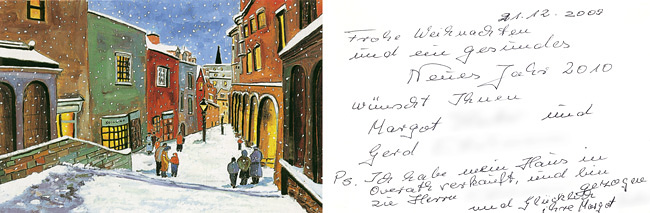 21.12.2009
Frohe Weihnachten
und ein gesundes
Neues Jahr 2010
wünscht Ihnen
Margot und
Gerd
Ps. Ich habe mein Haus in
Overath verkauft, und bin
zu Herrn gezogen
und glücklich
Ihre Margot